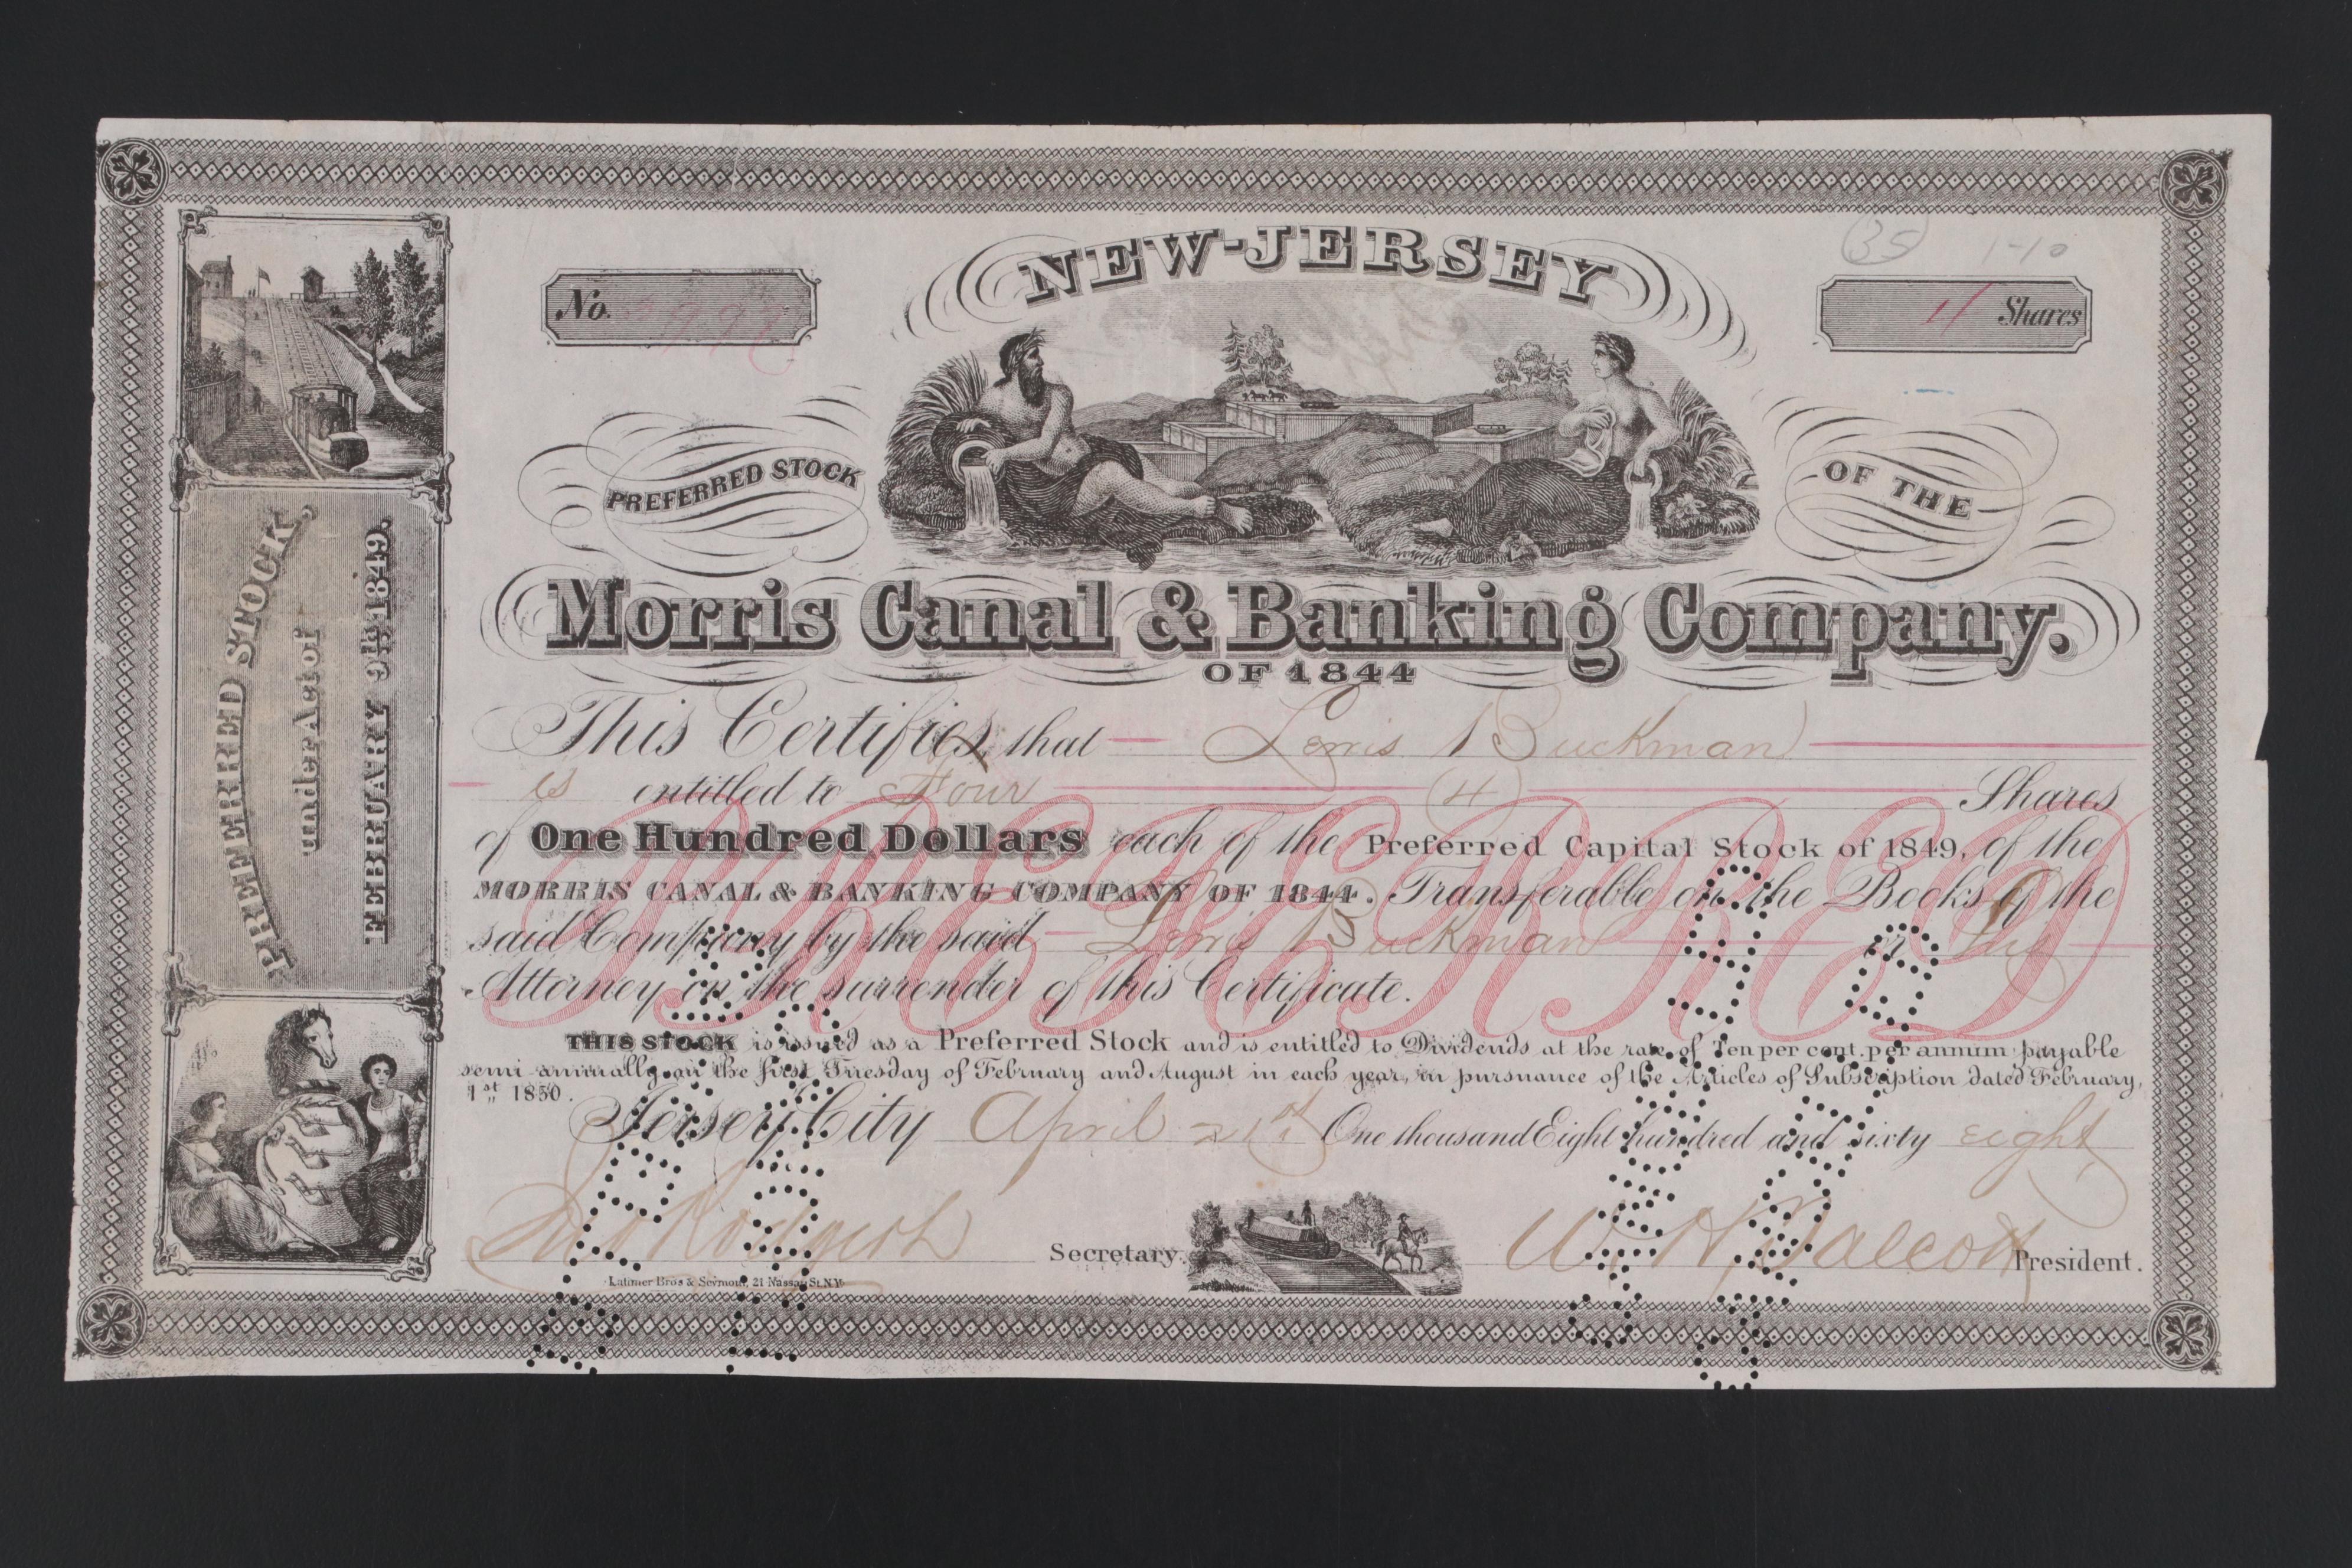 NEW-JERSEY
35 1-10
No.
4 Shares
PREFERRED STOCK
OF THE
Morris Canal & Banking Company.
OF 1844
PREFERRED STOCK,
under Act of
FEBRUARY 9th 1849.
This Certifies, that Lewis Buckman
is entitled to Four (4) Shares
of One Hundred Dollars each of the Preferred Capital Stock of 1849, of the
MORRIS CANAL & BANKING COMPANY OF 1844. Transferable on the Books of the
said Company by the said Lewis Buckman or his
Attorney on the surrender of this Certificate.
PREFERRED
THIS STOCK is issued as a Preferred Stock and is entitled to Dividends at the rate of Ten per cent. per annum payable
semi-annually on the first Tuesday of February and August in each year, in pursuance of the Articles of Subscription dated February,
1st 1850.
Jersey City April 21st One thousand Eight hundred and sixty eight
Secretary.
W. H. Talcott President.
Latimer Bros & Seymour, 21 Nassau St. N.Y.